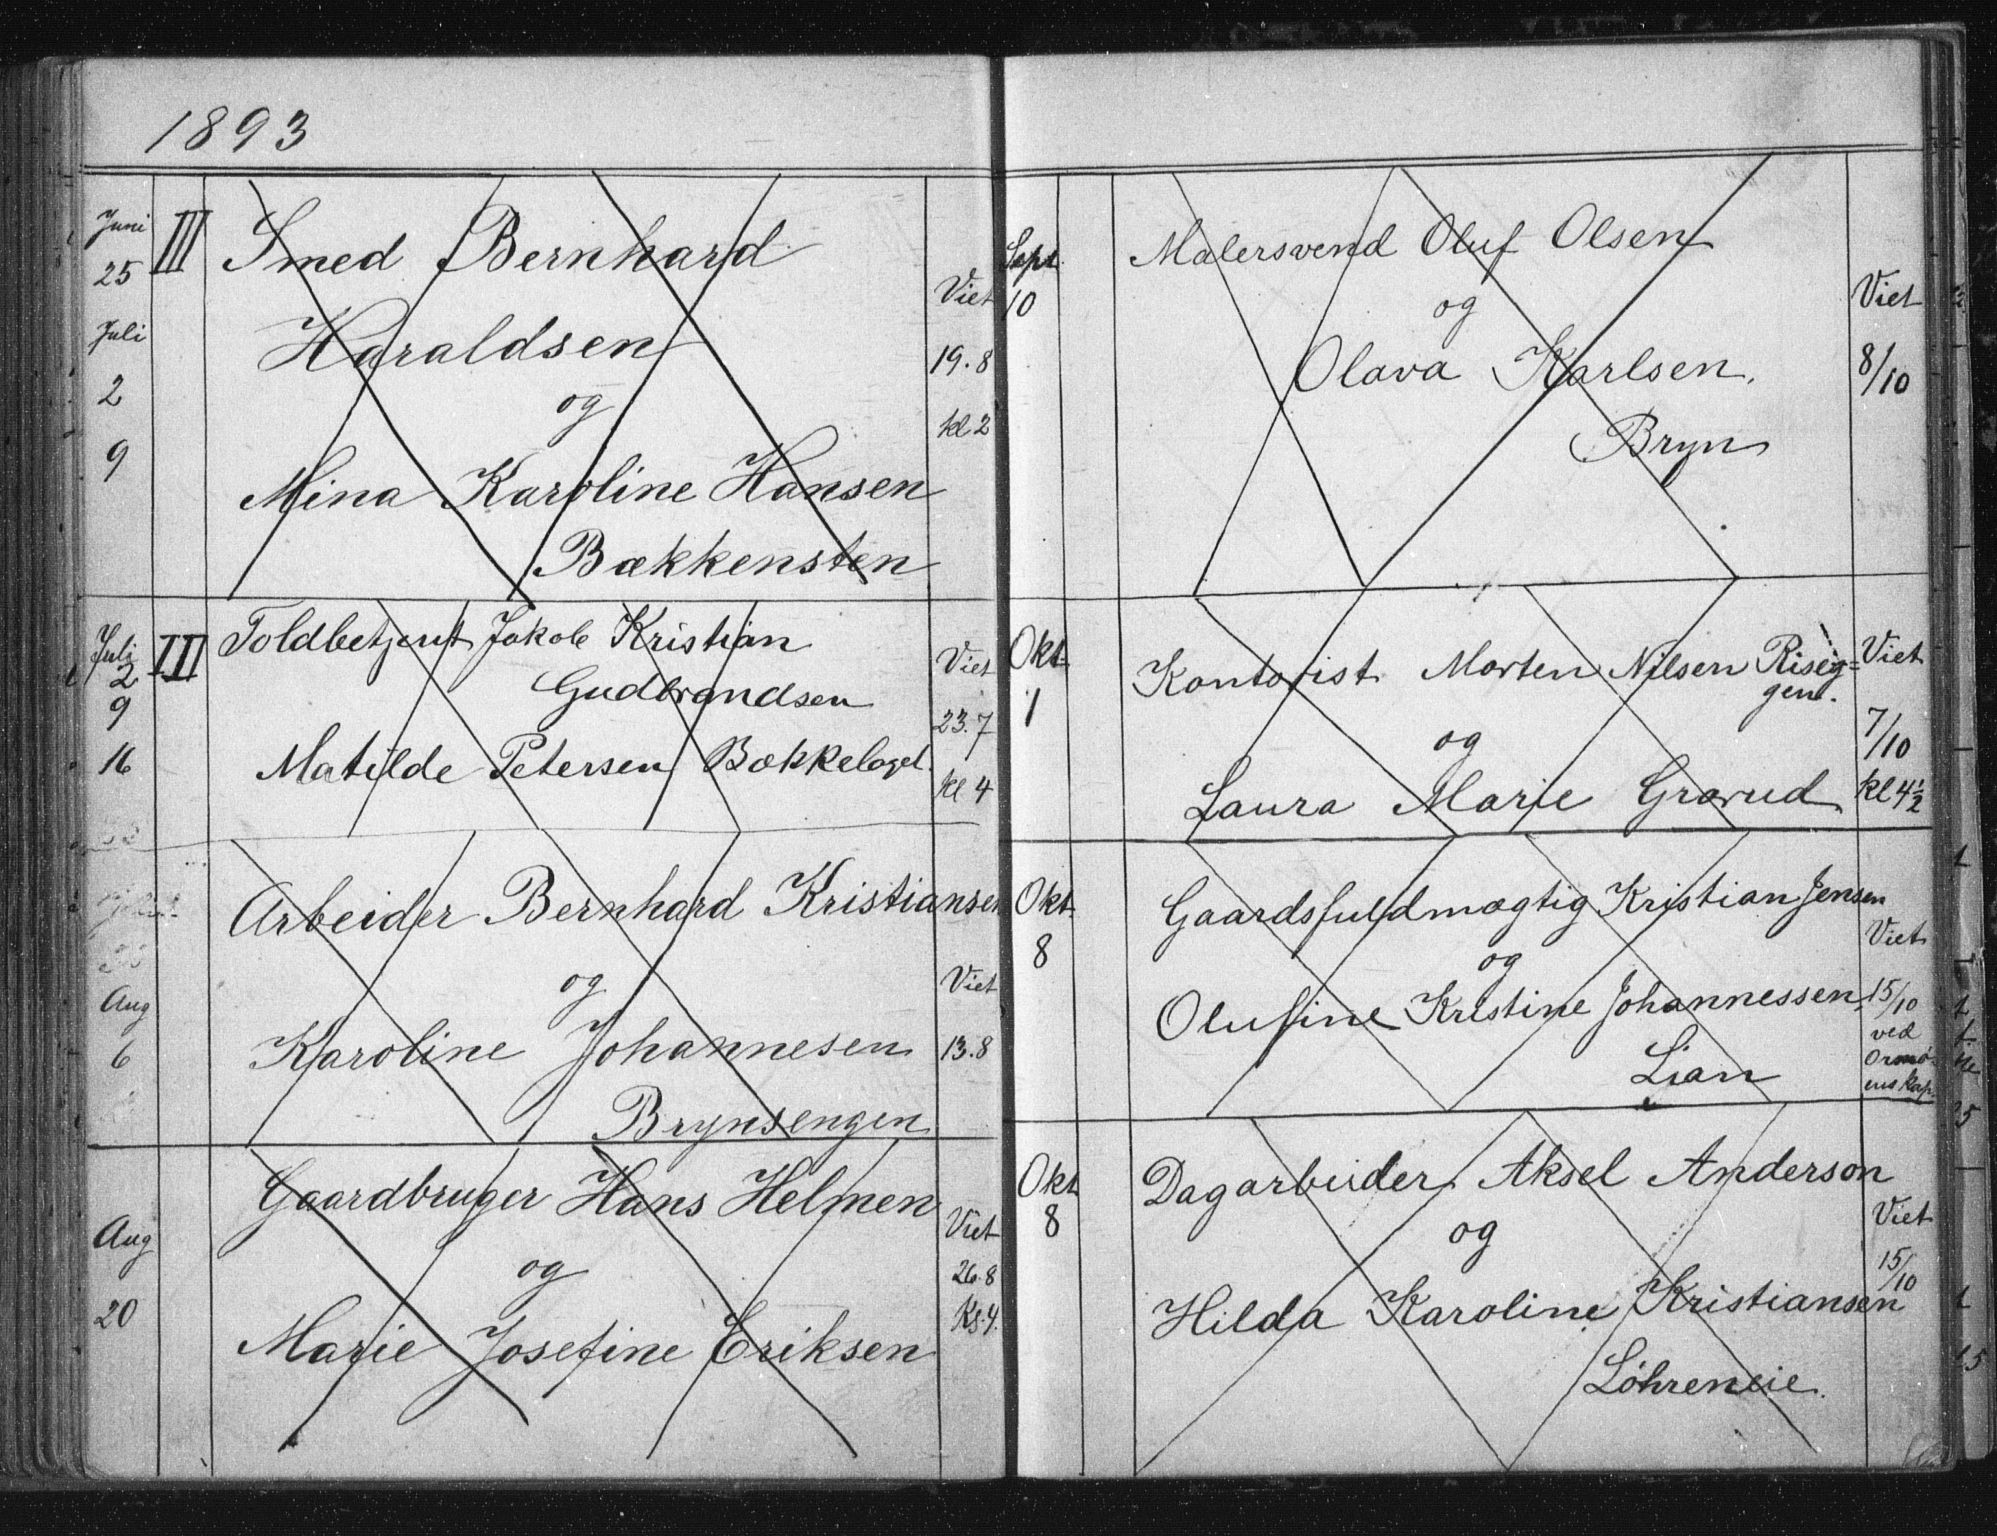 1893
Juni III Smed Bernhard
25 Viet
Juli Haraldsen 19.8
2 og kl 2
9 Mina Karoline Hansen
Bækkensten
Juli III Toldbetjent Jakob Kristian
2 Gudbrandsen Viet
9 23.7
16 Matilde Petersen Bækkelaget. kl 4
Arbeider Bernhard Kristiansen
Aug og Viet
6 Karoline Johannesen 13.8
Brynsengen
Gaardbruger Hans Helmen
Aug og Viet
20 Marie Josefine Eriksen 26.8
Kl. 4.
Sept Malersvend Oluf Olsen
10 og Viet
Olava Karlsen. 8/10
Bryn
Okt Kontorist Morten Nilsen Risig= Viet
1 gen.
og 7/10
Laura Marie Grorud kl 4½
Okt Gaardsfuldmægtig Kristian Jensen
8 og Viet
Olufine Kristine Johannessen 15/10
Lian ved
Ormø-
ens kap.
Okt Dagarbeider Aksel Anderson
8 og Viet
Hilda Karoline Kristiansen 15/10
Löhreneie.